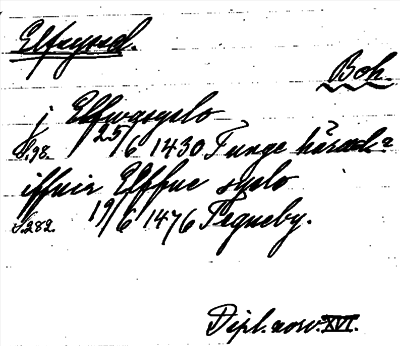 Elfsyssel.
Boh.
j Elfwosyslo
S. 98. 25/6 1430 Tunge härad?
iffuir Elffue syslo
S. 282. 19/6 1476 Tegneby.
Dipl. norv. XVI.